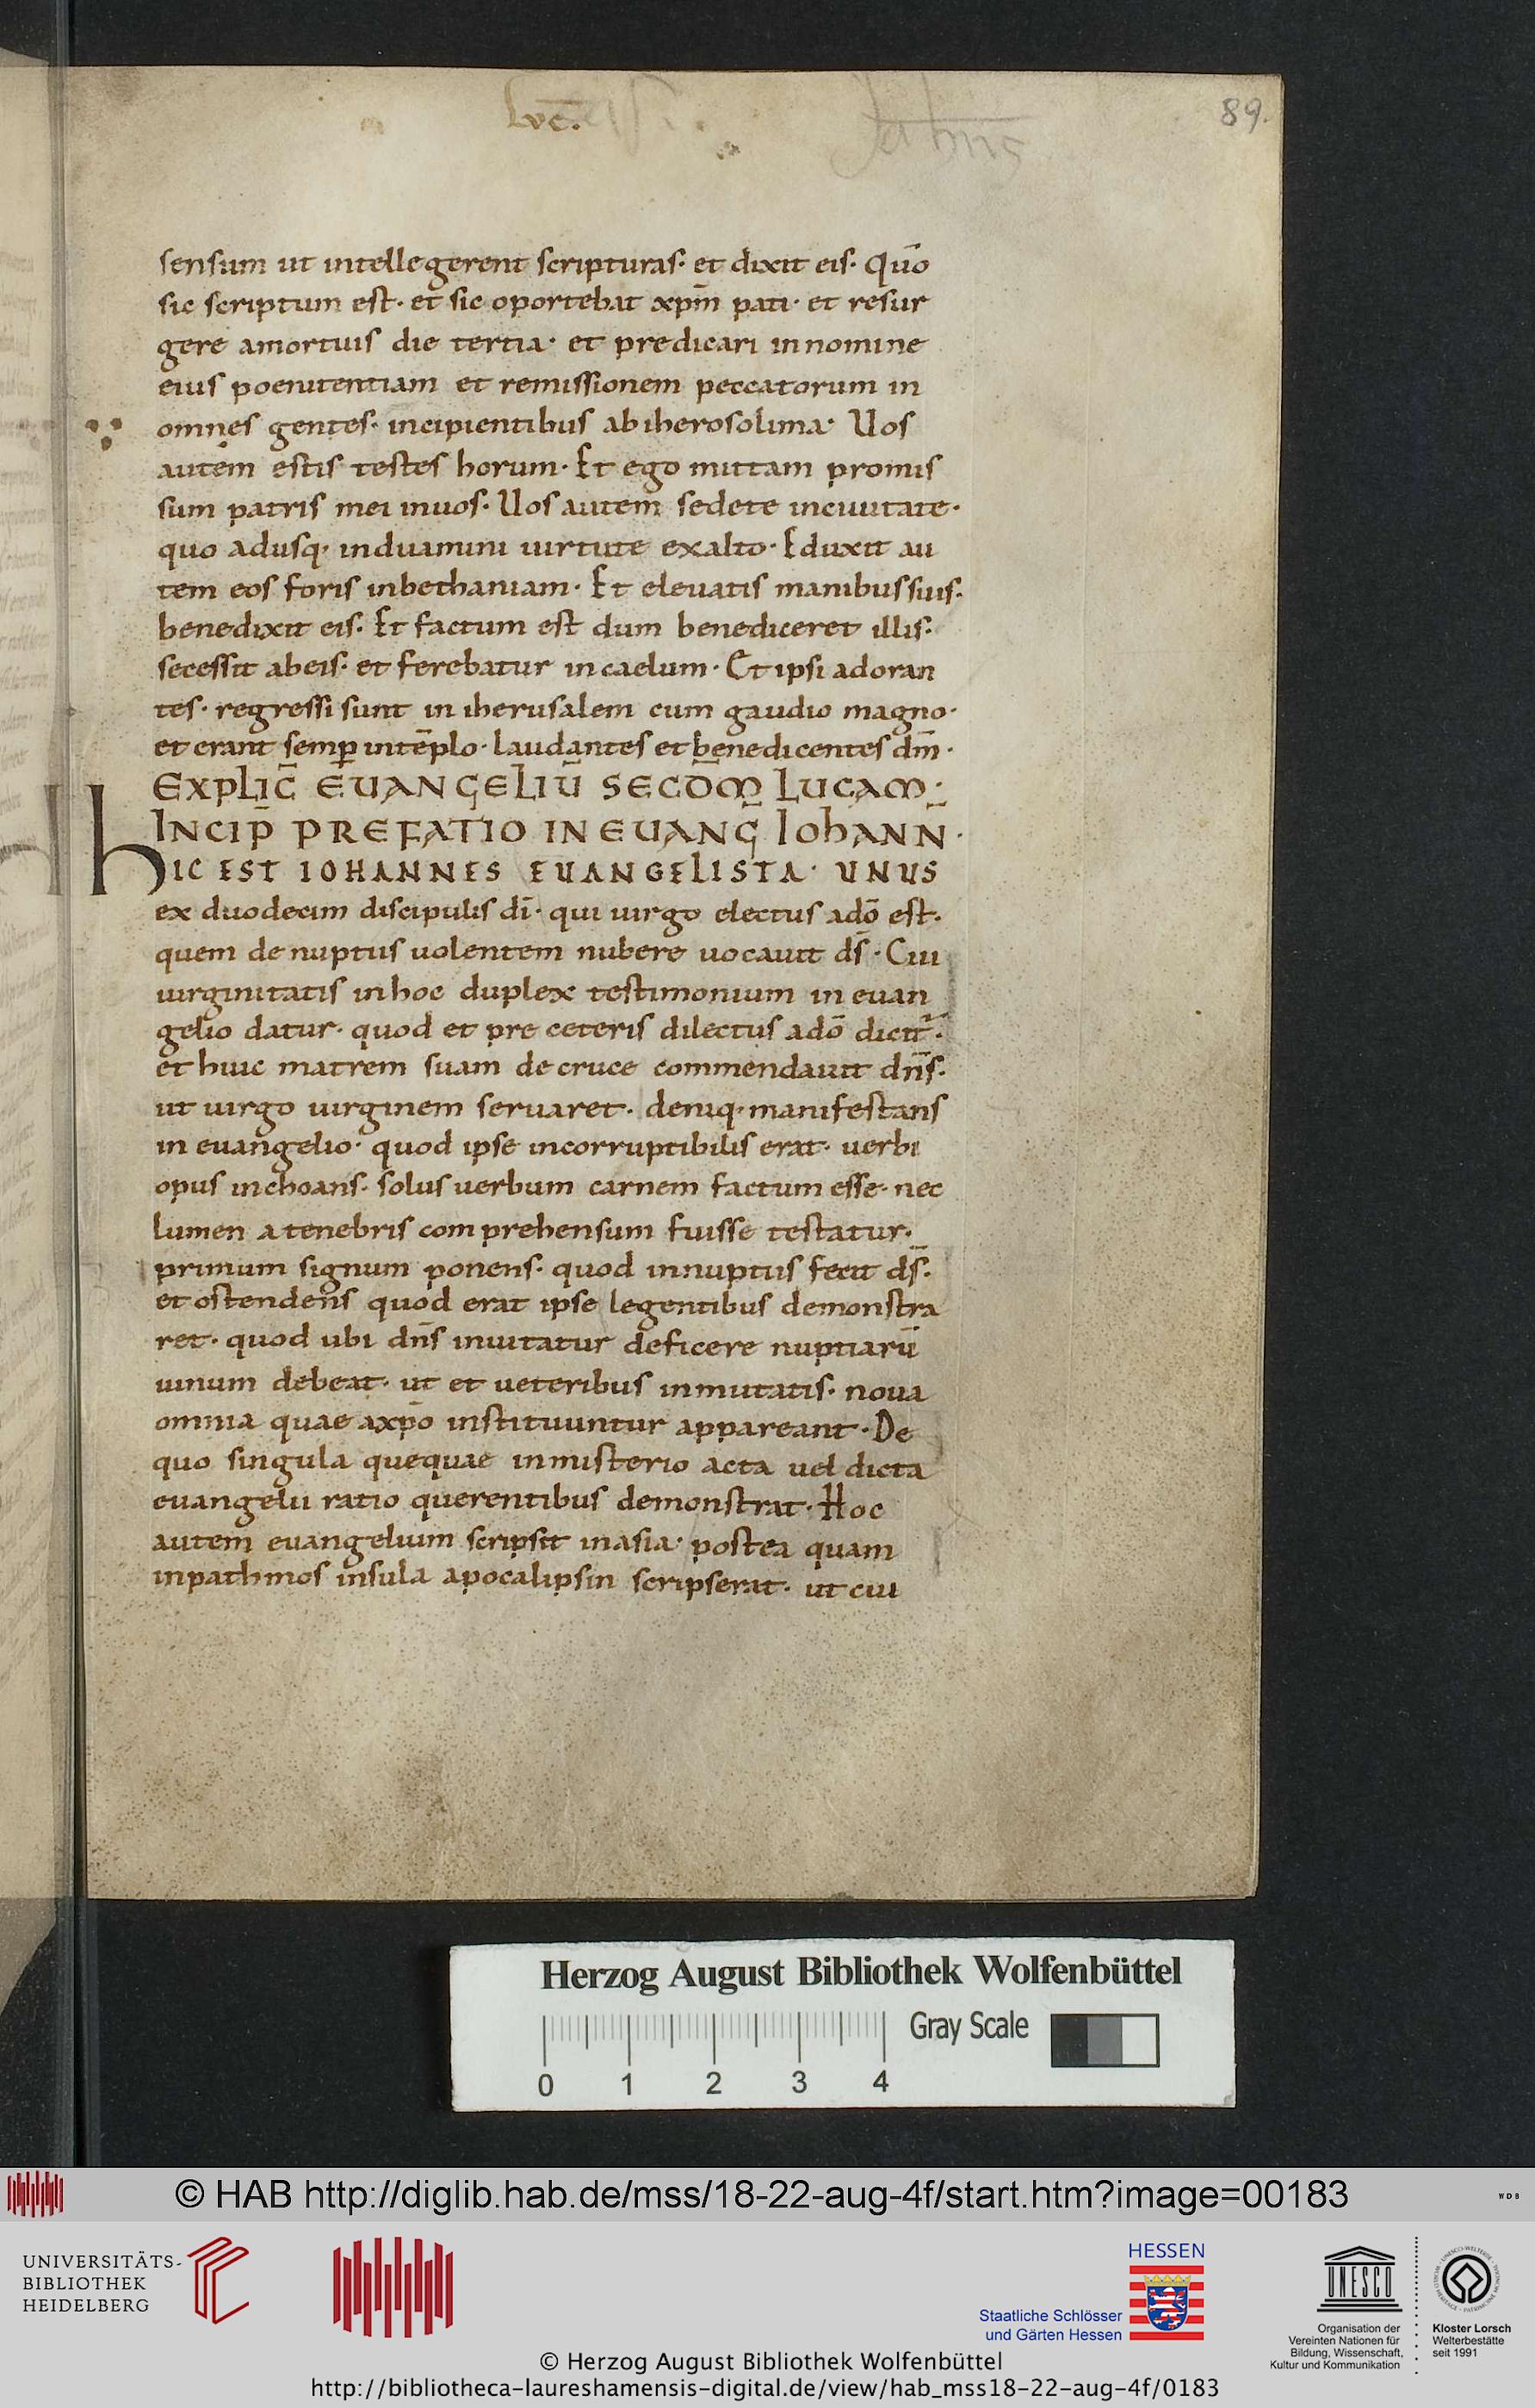 Luc̄.
Johīis
89.
sensum ut intellegerent scripturas· et dixit eis· Quō
sic scriptum est· et sic oportebat xpm̄ pati· et resur
gere amortuis die tertia· et predicari innomine
eius poenitentiam et remissionem peccatorum in
omnes gentes· incipientibus abiherosolima· Uos
autem estis testes horum· Et ego mittam promis
sum patris mei inuos· Uos autem sedete inciuitate·
quo adusq· induamini uirtute exalto· Eduxit au
tem eos foris inbethaniam· Et eleuatis manibus suis·
benedixit eis· Et factum est dum benediceret illis·
secessit abeis· et ferebatur incaelum· Et ipsi adoran
tes· regressi sunt in iherusalem cum gaudio magno·
et erant semꝑ intēplo· laudantes et benedicentes dm̄·
EXPLIC̄ EUANGELIŪ SECD̄M LUCAM·
INCIP̄ PREFATIO IN EUANḠ IOHANN̄·
HIC EST IOHANNES EUANGELISTA· UNUS
ex duodecim discipulis dī· qui uirgo electus adō est·
quem de nuptiis uolentem nubere uocauit ds̄· Cui
uirginitatis inhoc duplex testimonium in euan
gelio datur· quod et pre ceteris dilectus adō dicit̄·
et huic matrem suam de cruce commendauit dn̄s·
ut uirgo uirginem seruaret· deniq· manifestans
in euangelio· quod ipse incorruptibilis erat· uerbi
opus inchoans· solus uerbum carnem factum esse· nec
lumen a tenebris comprehensum fuisse testatur·
primum signum ponens· quod innuptiis fecit ds̄·
et ostendens quod erat ipse legentibus demonstra
ret· quod ubi dn̄s inuitatur deficere nuptiarū
uinum debeat· ut et ueteribus inmutatis· noua
omnia quae axpō instituuntur appareant· De
quo singula quequae inmisterio acta uel dicta
euangelii ratio querentibus demonstrat· Hoc
autem euangelium scripsit inasia· postea quam
inpathmos insula apocalipsin scripserat· ut cui
Herzog August Bibliothek Wolfenbüttel
Gray Scale
0 1 2 3 4
© HAB http://diglib.hab.de/mss/18-22-aug-4f/start.htm?image=00183
WDB
UNIVERSITÄTS-
BIBLIOTHEK
HEIDELBERG
HESSEN
Staatliche Schlösser
und Gärten Hessen
UNESCO
Organisation der
Vereinten Nationen für
Bildung, Wissenschaft,
Kultur und Kommunikation
Kloster Lorsch
Welterbestätte
seit 1991
© Herzog August Bibliothek Wolfenbüttel
http://bibliotheca-laureshamensis-digital.de/view/hab_mss18-22-aug-4f/0183